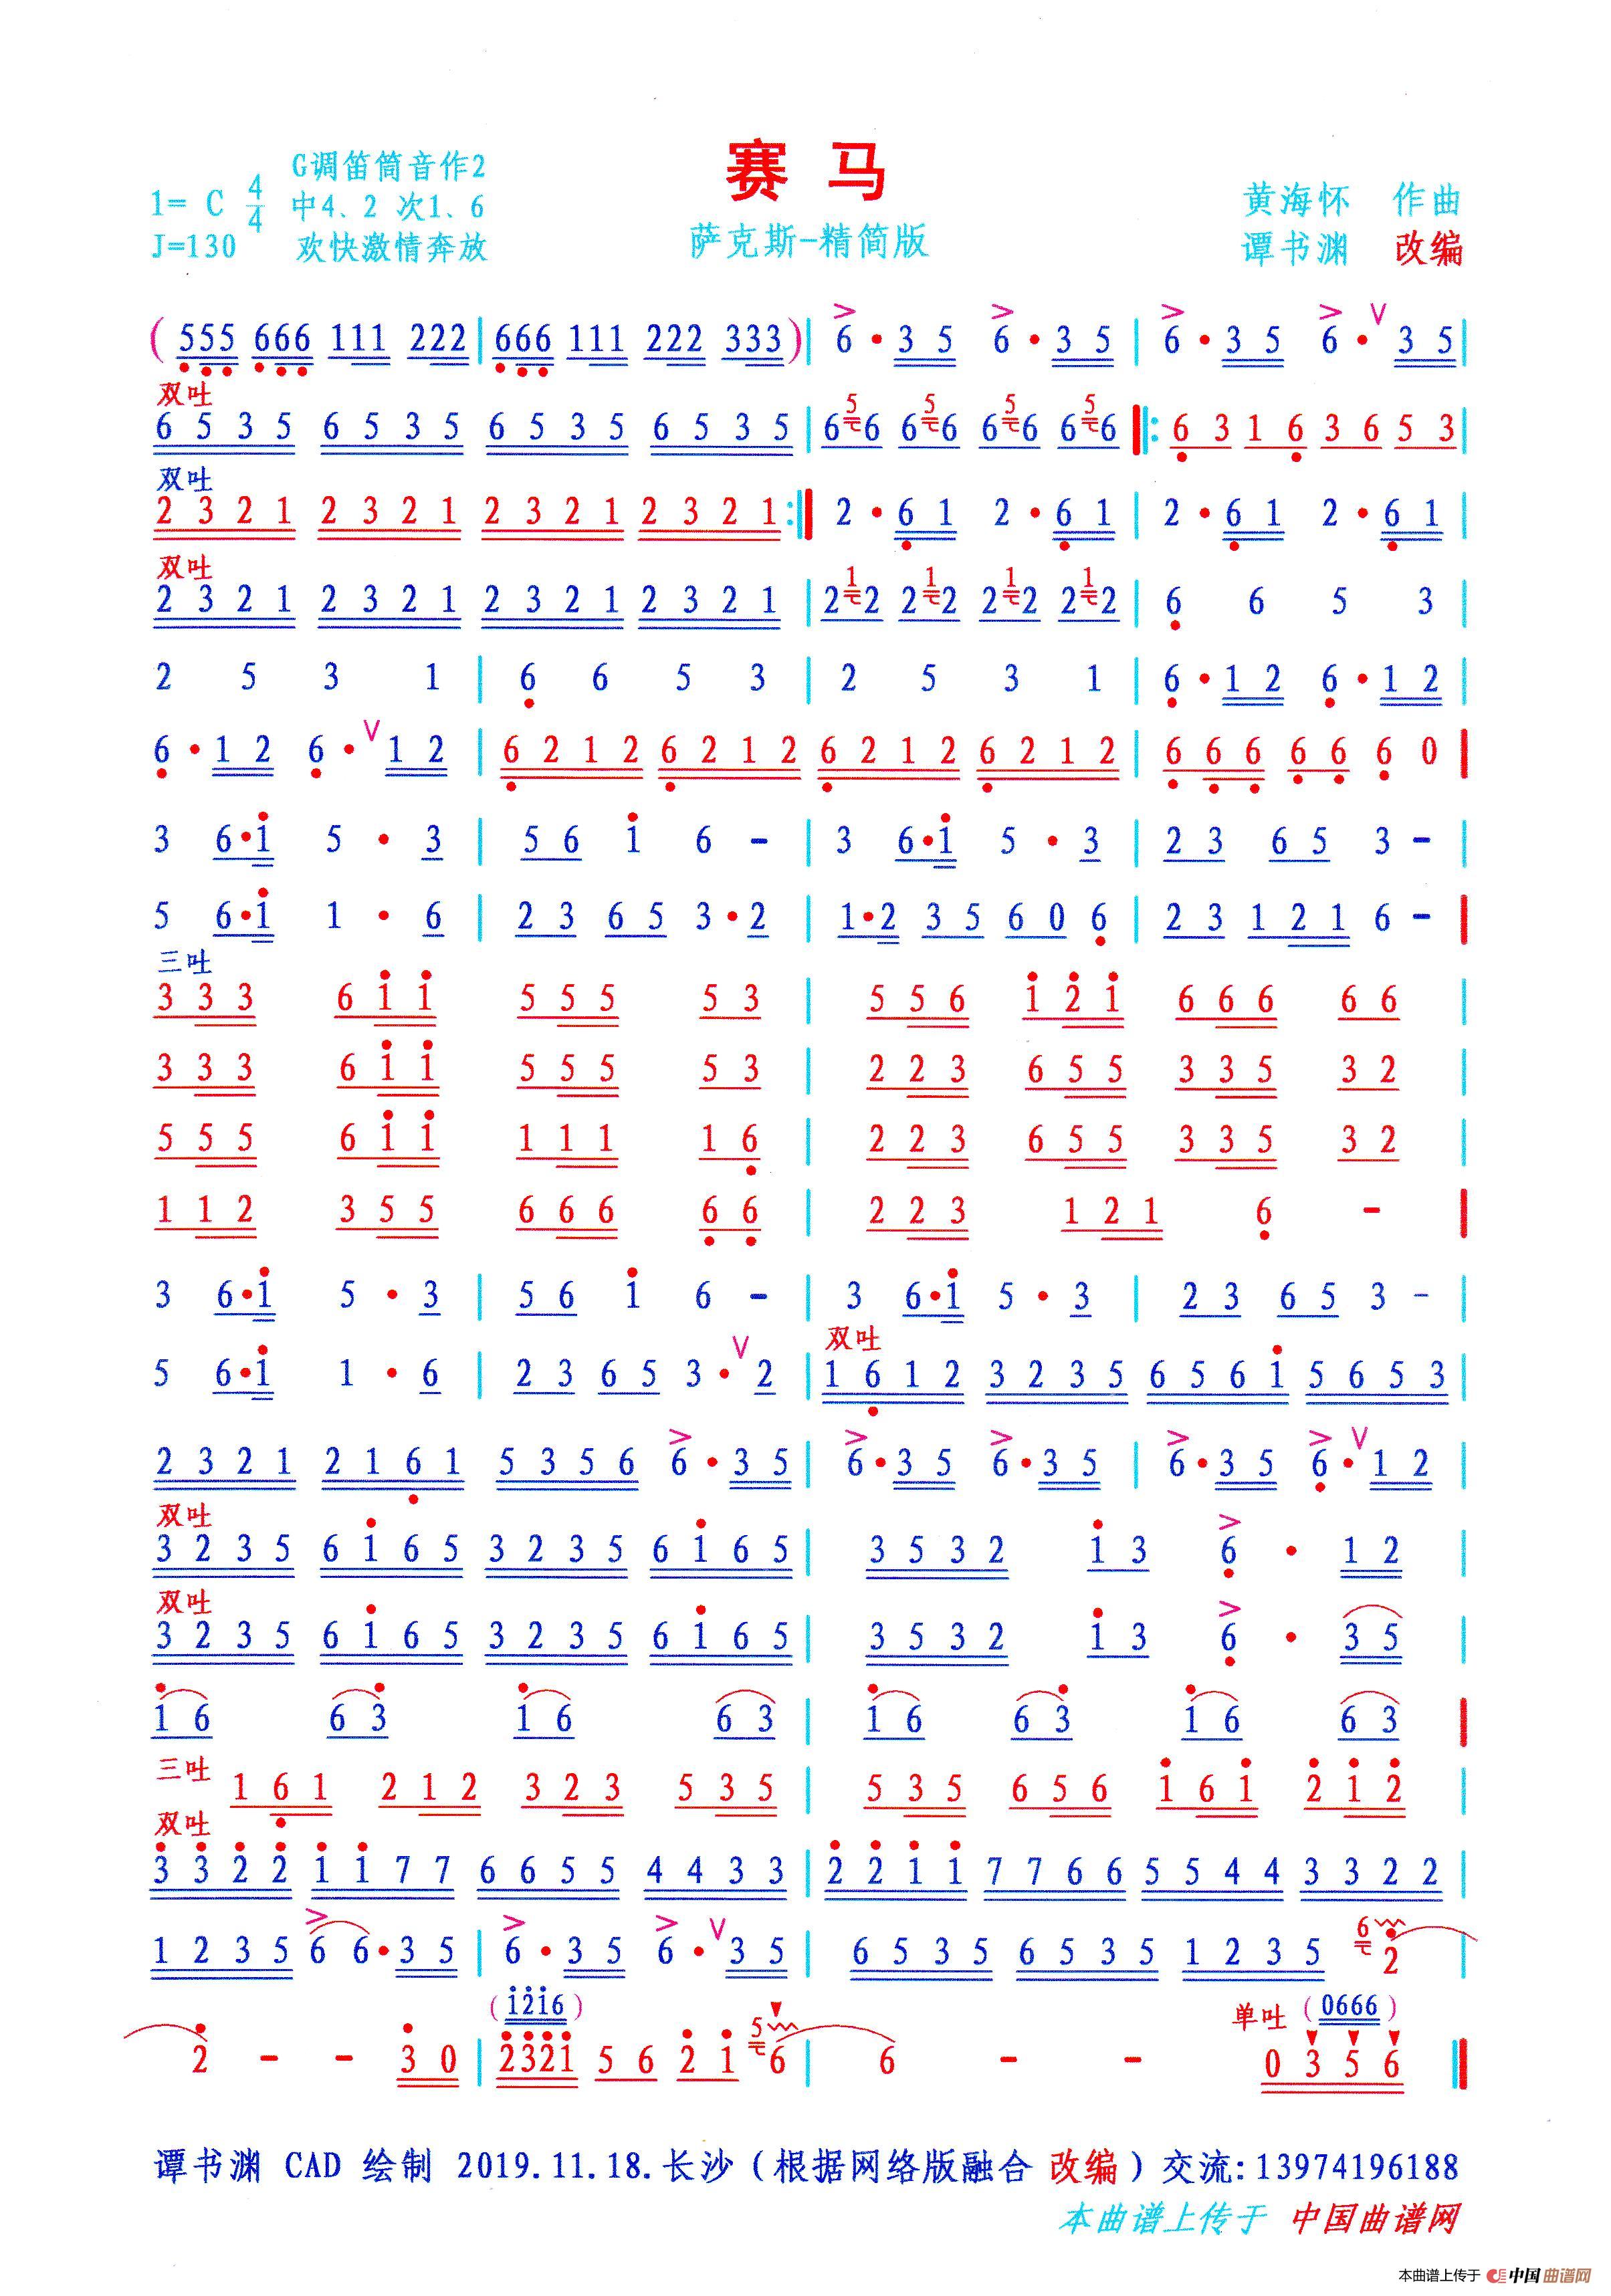 赛 马
萨克斯-精简版
1= C 4/4
J=130
G调笛筒音作2
中4、2 次1、6
欢快激情奔放
黄海怀 作曲
谭书渊 改编
( 555 666 111 222 | 666 111 222 333 ) | > 6 · 3 5 > 6 · 3 5 | > 6 · 3 5 > 6 · V 3 5 |
双吐
6 5 3 5 6 5 3 5 6 5 3 5 6 5 3 5 | 6 5 6 6 5 6 6 5 6 6 5 6 |: 6 3 1 6 3 6 5 3 |
双吐
2 3 2 1 2 3 2 1 2 3 2 1 2 3 2 1 :| 2 · 6 1 2 · 6 1 | 2 · 6 1 2 · 6 1 |
双吐
2 3 2 1 2 3 2 1 2 3 2 1 2 3 2 1 | 2 1 2 2 1 2 2 1 2 2 1 2 | 6 6 5 3 |
2 5 3 1 | 6 6 5 3 | 2 5 3 1 | 6 · 1 2 6 · 1 2 |
6 · 1 2 6 · V 1 2 | 6 2 1 2 6 2 1 2 6 2 1 2 6 2 1 2 | 6 6 6 6 6 6 0 |
3 6 · i 5 · 3 | 5 6 i 6 - | 3 6 · i 5 · 3 | 2 3 6 5 3 - |
5 6 · i 1 · 6 | 2 3 6 5 3 · 2 | 1 · 2 3 5 6 0 6 | 2 3 1 2 1 6 - |
三吐
3 3 3 6 i i 5 5 5 5 3 | 5 5 6 i 2 i 6 6 6 6 6 |
3 3 3 6 i i 5 5 5 5 3 | 2 2 3 6 5 5 3 3 5 3 2 |
5 5 5 6 i i 1 1 1 1 6 | 2 2 3 6 5 5 3 3 5 3 2 |
1 1 2 3 5 5 6 6 6 6 6 | 2 2 3 1 2 1 6 - |
3 6 · i 5 · 3 | 5 6 i 6 - | 3 6 · i 5 · 3 | 2 3 6 5 3 - |
双吐
5 6 · i 1 · 6 | 2 3 6 5 3 · V 2 | 1 6 1 2 3 2 3 5 6 5 6 i 5 6 5 3 |
2 3 2 1 2 1 6 1 5 3 5 6 > 6 · 3 5 | > 6 · 3 5 > 6 · 3 5 | > 6 · 3 5 > 6 · V 1 2 |
双吐
3 2 3 5 6 i 6 5 3 2 3 5 6 i 6 5 | 3 5 3 2 i 3 > 6 · 1 2
双吐
3 2 3 5 6 i 6 5 3 2 3 5 6 i 6 5 | 3 5 3 2 i 3 > 6 · 3 5 |
i 6 6 3 i 6 6 3 | i 6 6 3 i 6 6 3 |
三吐
1 6 1 2 1 2 3 2 3 5 3 5 | 5 3 5 6 5 6 i 6 i 2 i 2 |
双吐
3 3 2 2 i i 7 7 6 6 5 5 4 4 3 3 | 2 2 i i 7 7 6 6 5 5 4 4 3 3 2 2 |
1 2 3 5 > 6 6 · 3 5 | > 6 · 3 5 > 6 · V 3 5 | 6 5 3 5 6 5 3 5 1 2 3 5 6 2 |
( i2i6 ) 单吐 ( 0666 )
2 - - 3 0 | 2 3 2 i 5 6 2 i 5 6 | 6 - - 0 3 5 6 ‖
谭书渊 CAD 绘制 2019.11.18.长沙(根据网络版融合 改编)交流:13974196188
本曲谱上传于 中国曲谱网
本曲谱上传于 中国曲谱网